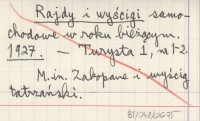 Rajdy i wyścigi samo-
chodowe w roku bieżącym.
1927. — Turysta 1, n 1-2.
M. in. Zakopane i wyścig
tatrzański.
BT/242/2675